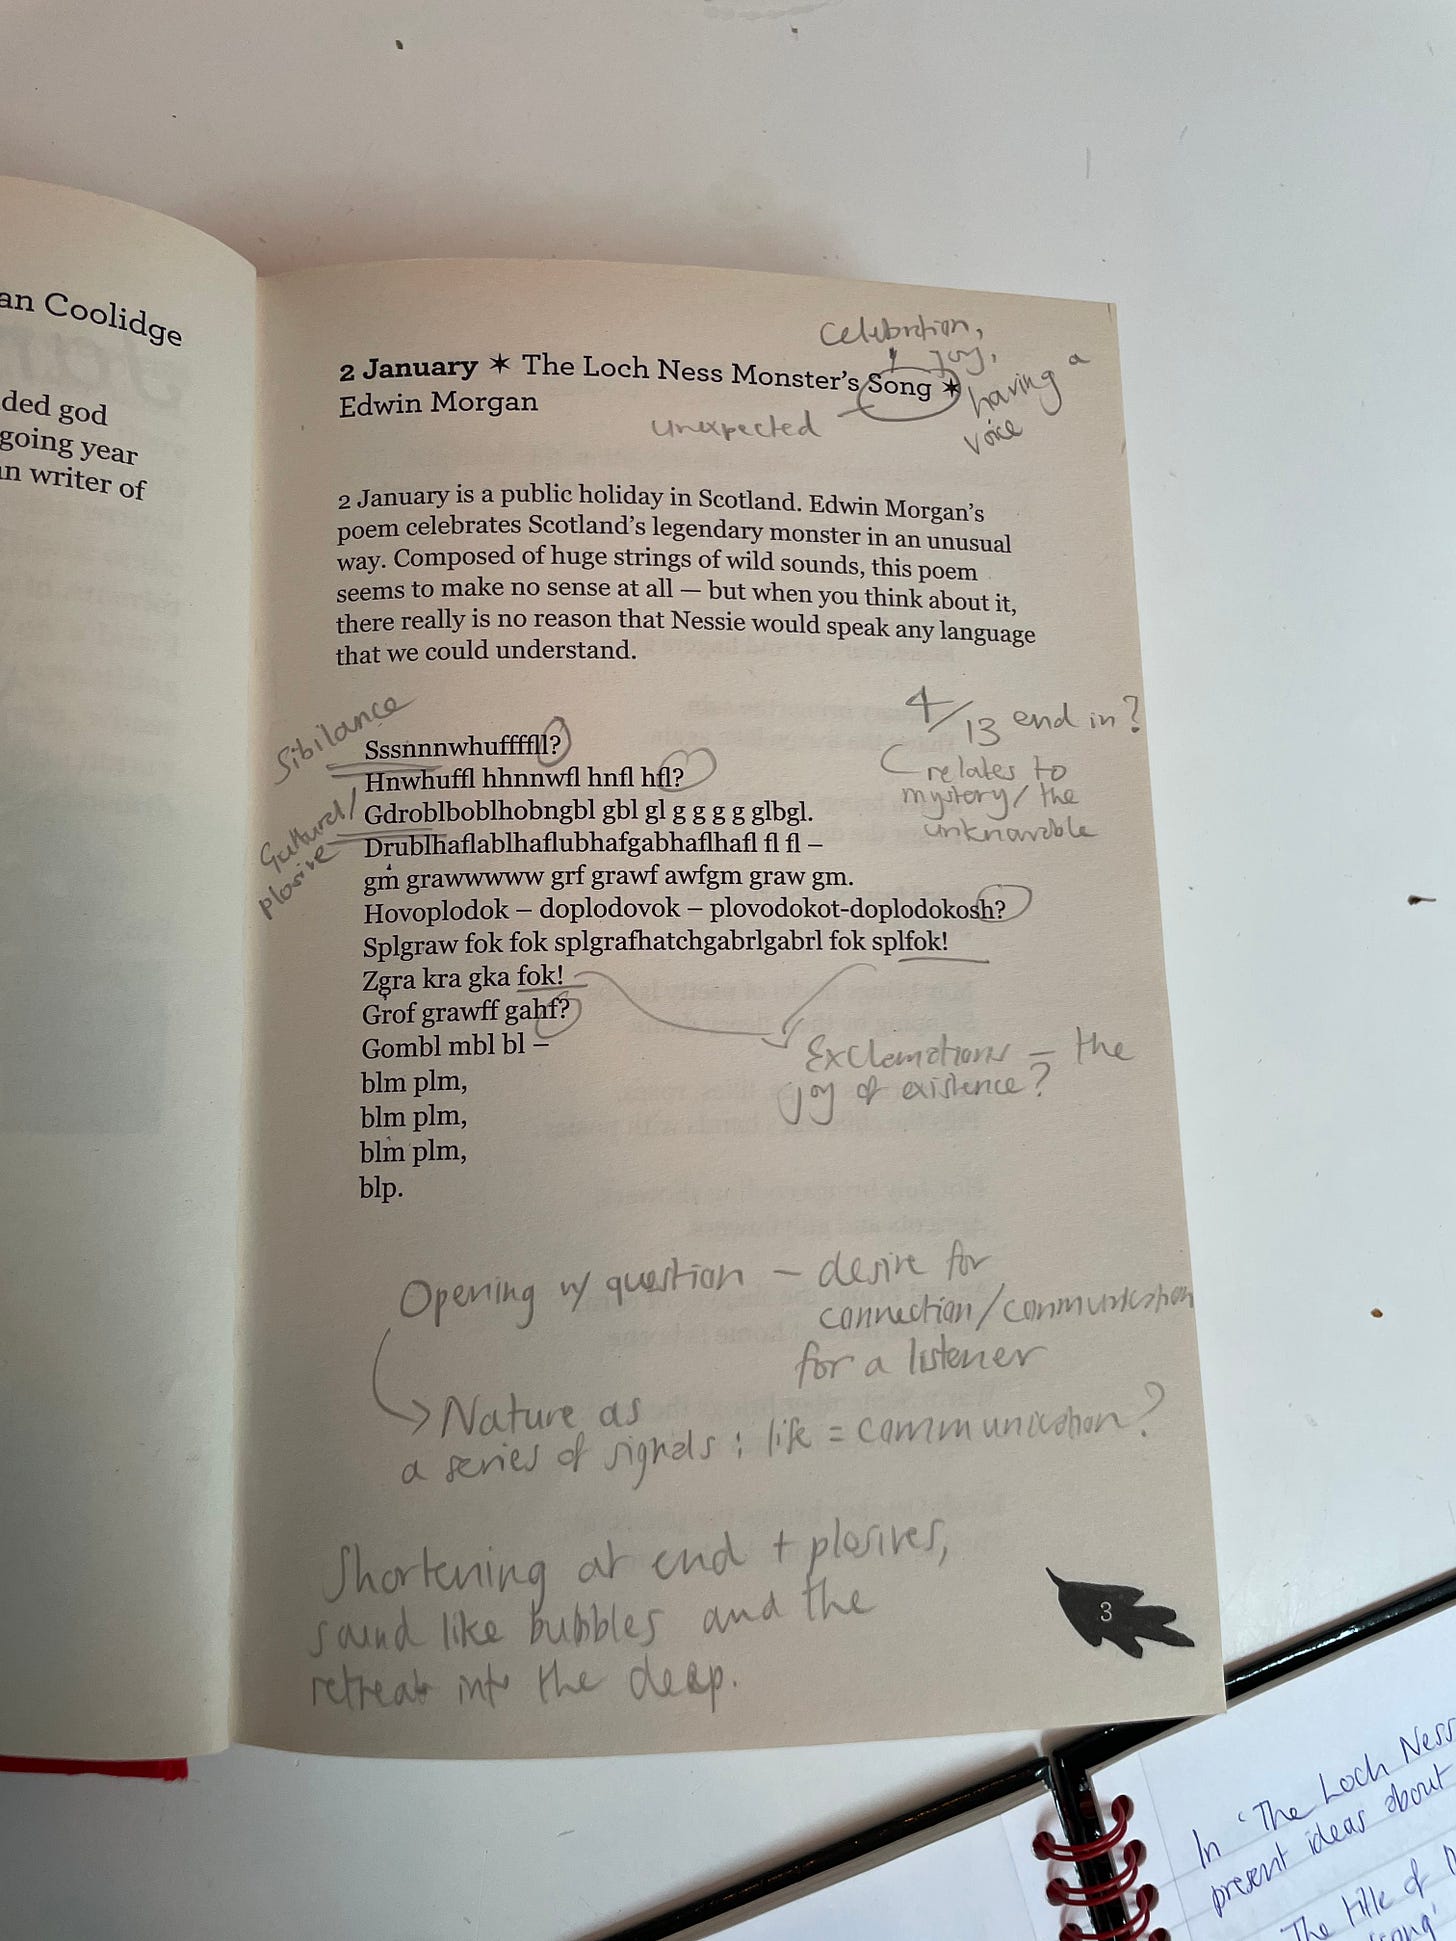 an Coolidge
ded god
going year
n writer of
celebration,
joy,
having a
voice
2 January ✶ The Loch Ness Monster's Song ✶
Edwin Morgan
unexpected
2 January is a public holiday in Scotland. Edwin Morgan's
poem celebrates Scotland's legendary monster in an unusual
way. Composed of huge strings of wild sounds, this poem
seems to make no sense at all — but when you think about it,
there really is no reason that Nessie would speak any language
that we could understand.
Sibilance
Guttural/
plosive
4/13 end in?
relates to
mystery/the
unknowable
Sssnnnwhuffffll?
Hnwhuffl hhnnwfl hnfl hfl?
Gdroblboblhobngbl gbl gl g g g g glbgl.
Drublhaflablhaflubhafgabhaflhafl fl fl –
gm grawwwww grf grawf awfgm graw gm.
Hovoplodok – doplodovok – plovodokot-doplodokosh?
Splgraw fok fok splgrafhatchgabrlgabrl fok splfok!
Zgra kra gka fok!
Grof grawff gahf?
Gombl mbl bl –
blm plm,
blm plm,
blm plm,
blp.
Exclamations – the
joy of existence?
Opening w/ question – desire for
connection/communication
for a listener
Nature as
a series of signals: life = communication?
Shortening at end + plosives,
sound like bubbles and the
retreat into the deep.
3
In 'The Loch Ness
present ideas about
The title of
song'